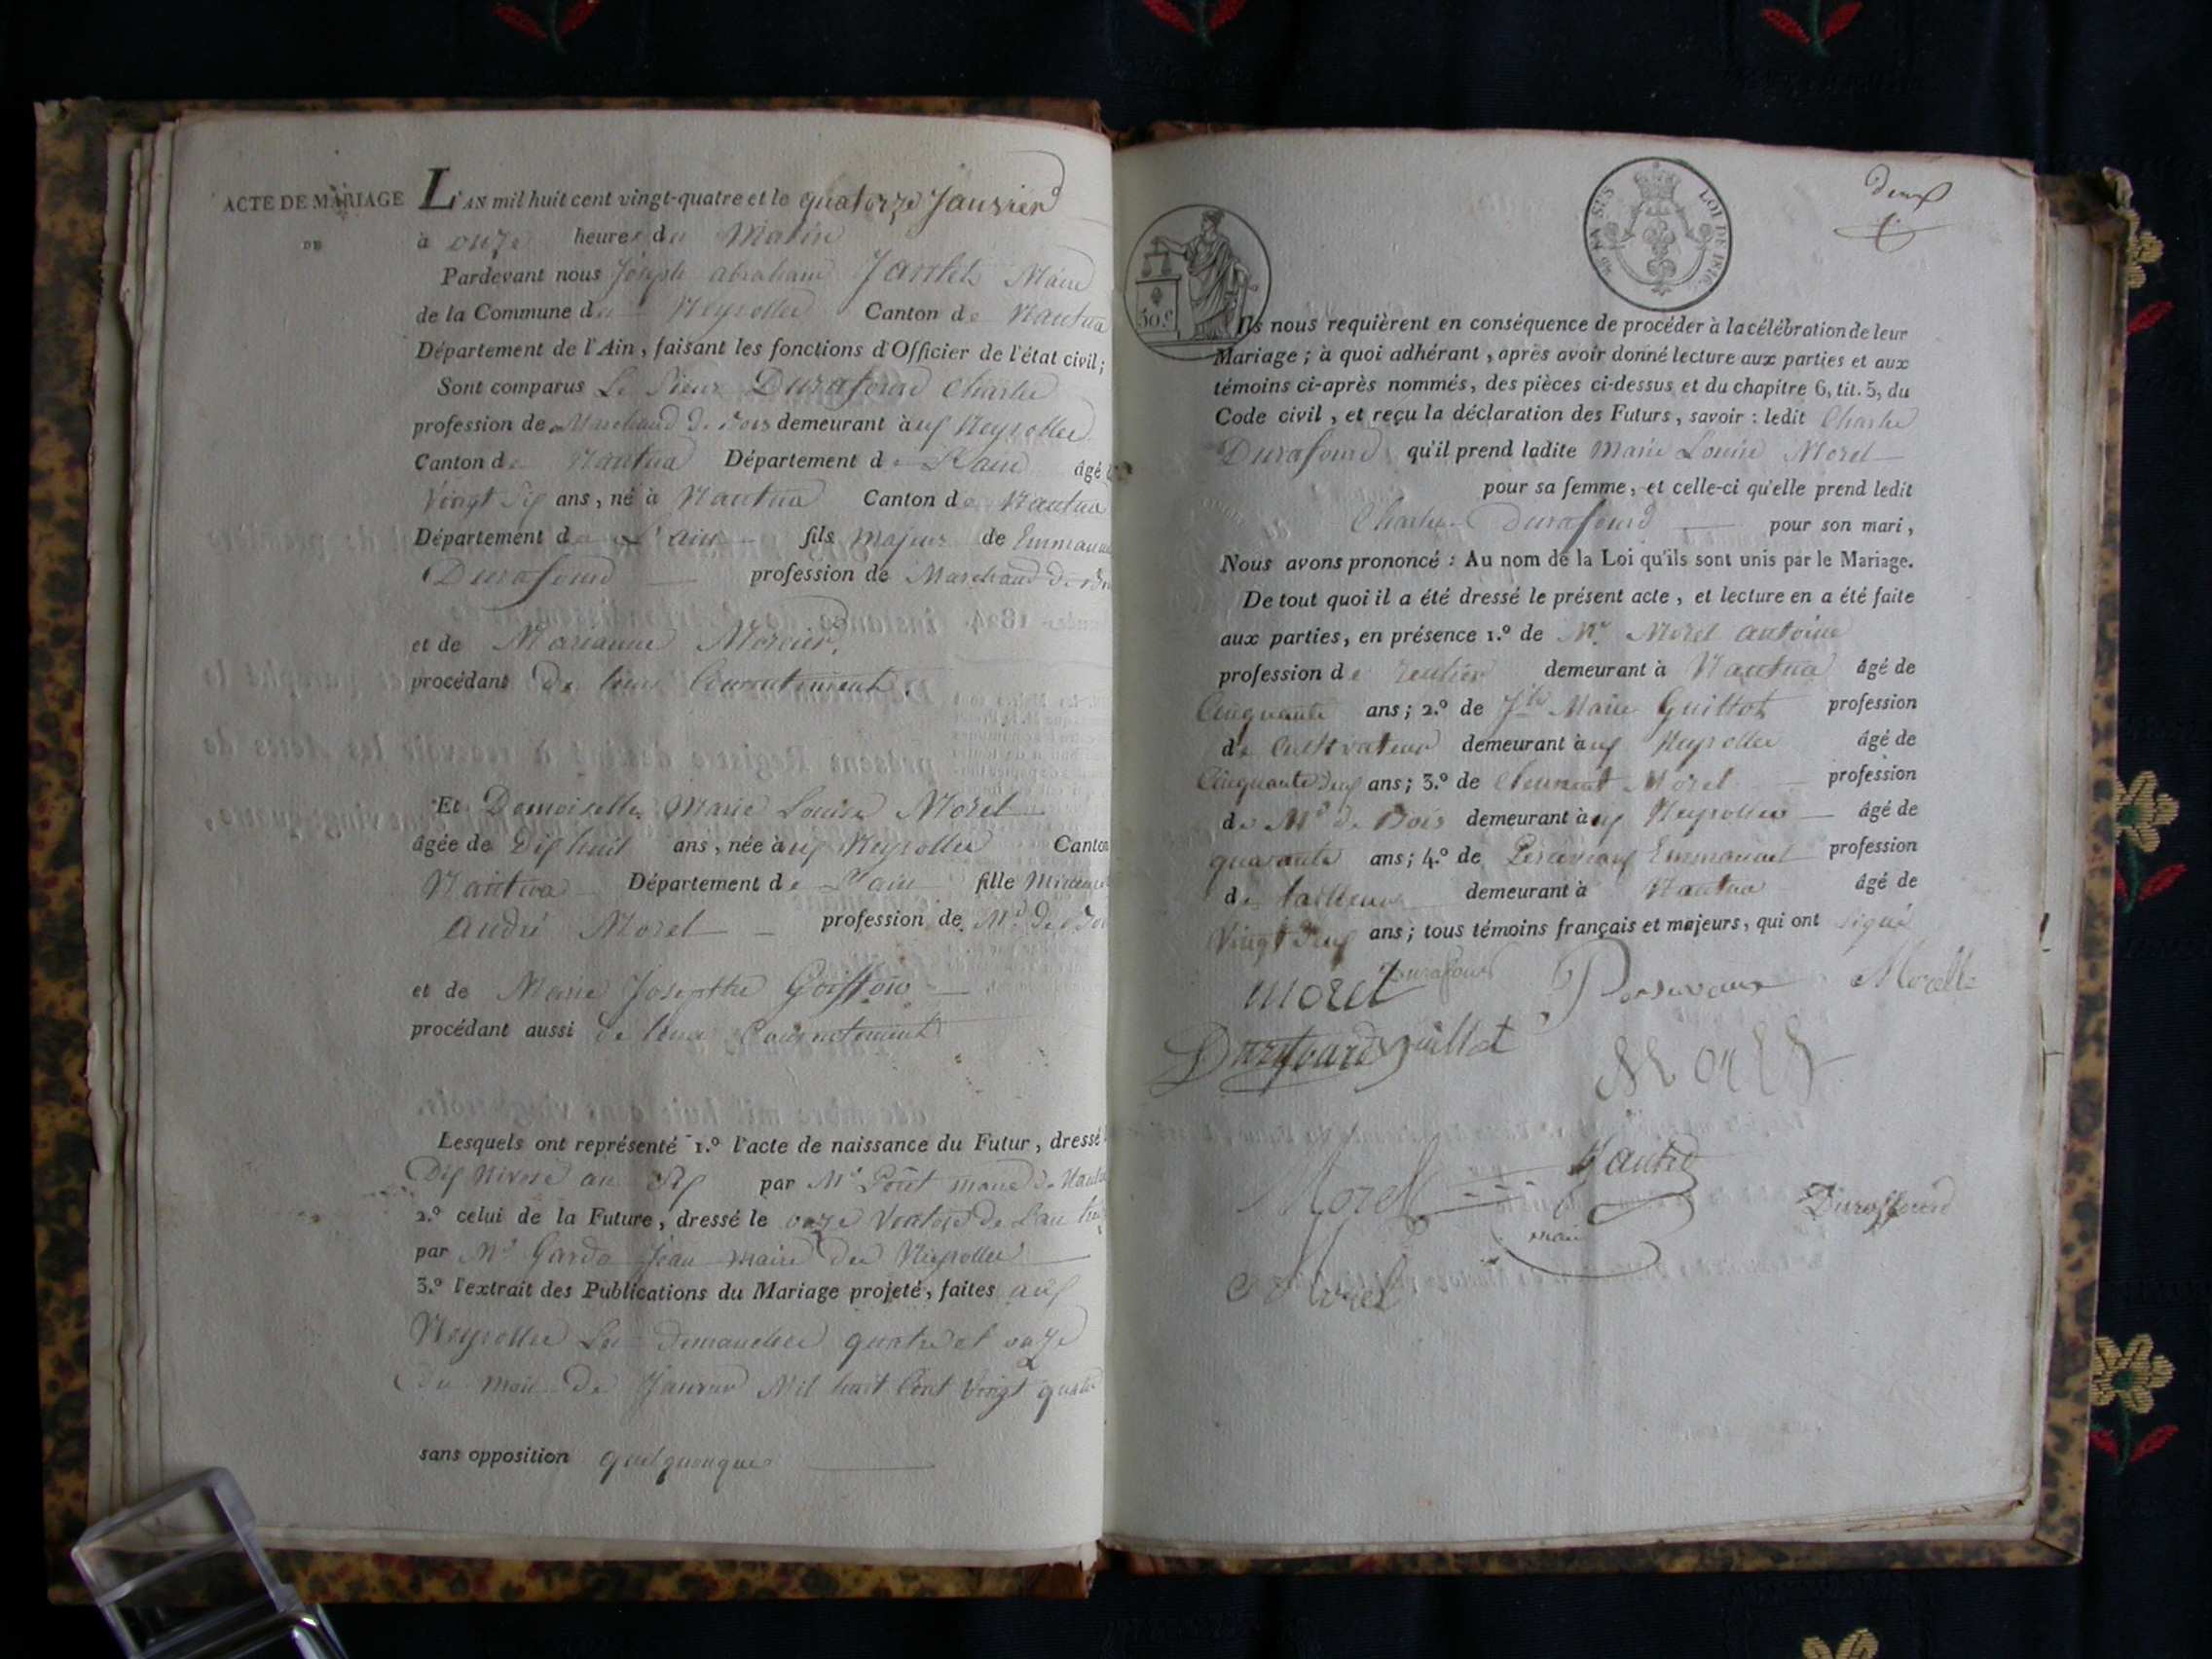 ACTE DE MARIAGE
DE
L'AN mil huit cent vingt-quatre et le quatorze Janvier
à onze heures du Matin
Pardevant nous Joseph abraham Maire
de la Commune de Neyrolles Canton de Nantua
Département de l'Ain, faisant les fonctions d'Officier de l'état civil;
Sont comparus Le Sieur Durafourd Charles
profession de Marchand de Bois demeurant aux Neyrolles
Canton de Nantua Département de L'ain âgé
Vingt ans, né à Nantua Canton de Nantua
Département de L'ain fils majeur de Emmanuel
Durafourd profession de Marchand de
et de Marianne Mercier,
procédant de leur Consentement.
Et Demoiselle Marie Louise Morel
âgée de Dix huit ans, née aux Neyrolles Canton
Nantua Département de L'ain fille Mineure
André Morel profession de Md de Bois
et de Marie Josephte Goiffon
procédant aussi de leur Consentement
Lesquels ont représenté 1.º l'acte de naissance du Futur, dressé
Dix Nivose an Six par Mr maire de Nantua
2.º celui de la Future, dressé le onze Ventose de L'an
par Mr Jean maire des Neyrolles
3.º l'extrait des Publications du Mariage projeté, faites aux
Neyrolles Les dimanches quatre et onze
du mois de Janvier Mil huit Cent Vingt quatre
sans opposition quelquonque
deux
LOI DE 1816
50.c
Ils nous requièrent en conséquence de procéder à la célébration de leur
Mariage; à quoi adhérant, après avoir donné lecture aux parties et aux
témoins ci-après nommés, des pièces ci-dessus et du chapitre 6, tit. 5, du
Code civil, et reçu la déclaration des Futurs, savoir: ledit Charles
Durafourd qu'il prend ladite Marie Louise Morel
pour sa femme, et celle-ci qu'elle prend ledit
Charles Durafourd pour son mari,
Nous avons prononcé: Au nom de la Loi qu'ils sont unis par le Mariage.
De tout quoi il a été dressé le présent acte, et lecture en a été faite
aux parties, en présence 1.º de Mr Morel antoine
profession de rentier demeurant à Nantua âgé de
Cinquante ans; 2.º de Marie Guillot profession
de Cultivateur demeurant aux Neyrolles âgé de
Cinquante deux ans; 3.º de Clement Morel profession
de Md de Bois demeurant aux Neyrolles âgé de
quarante ans; 4.º de Emmanuel profession
de tailleur demeurant à Nantua âgé de
Vingt deux ans; tous témoins français et majeurs, qui ont signé
Morel Durafour Morel
Durafourd guillot
Morel
maire
Morel